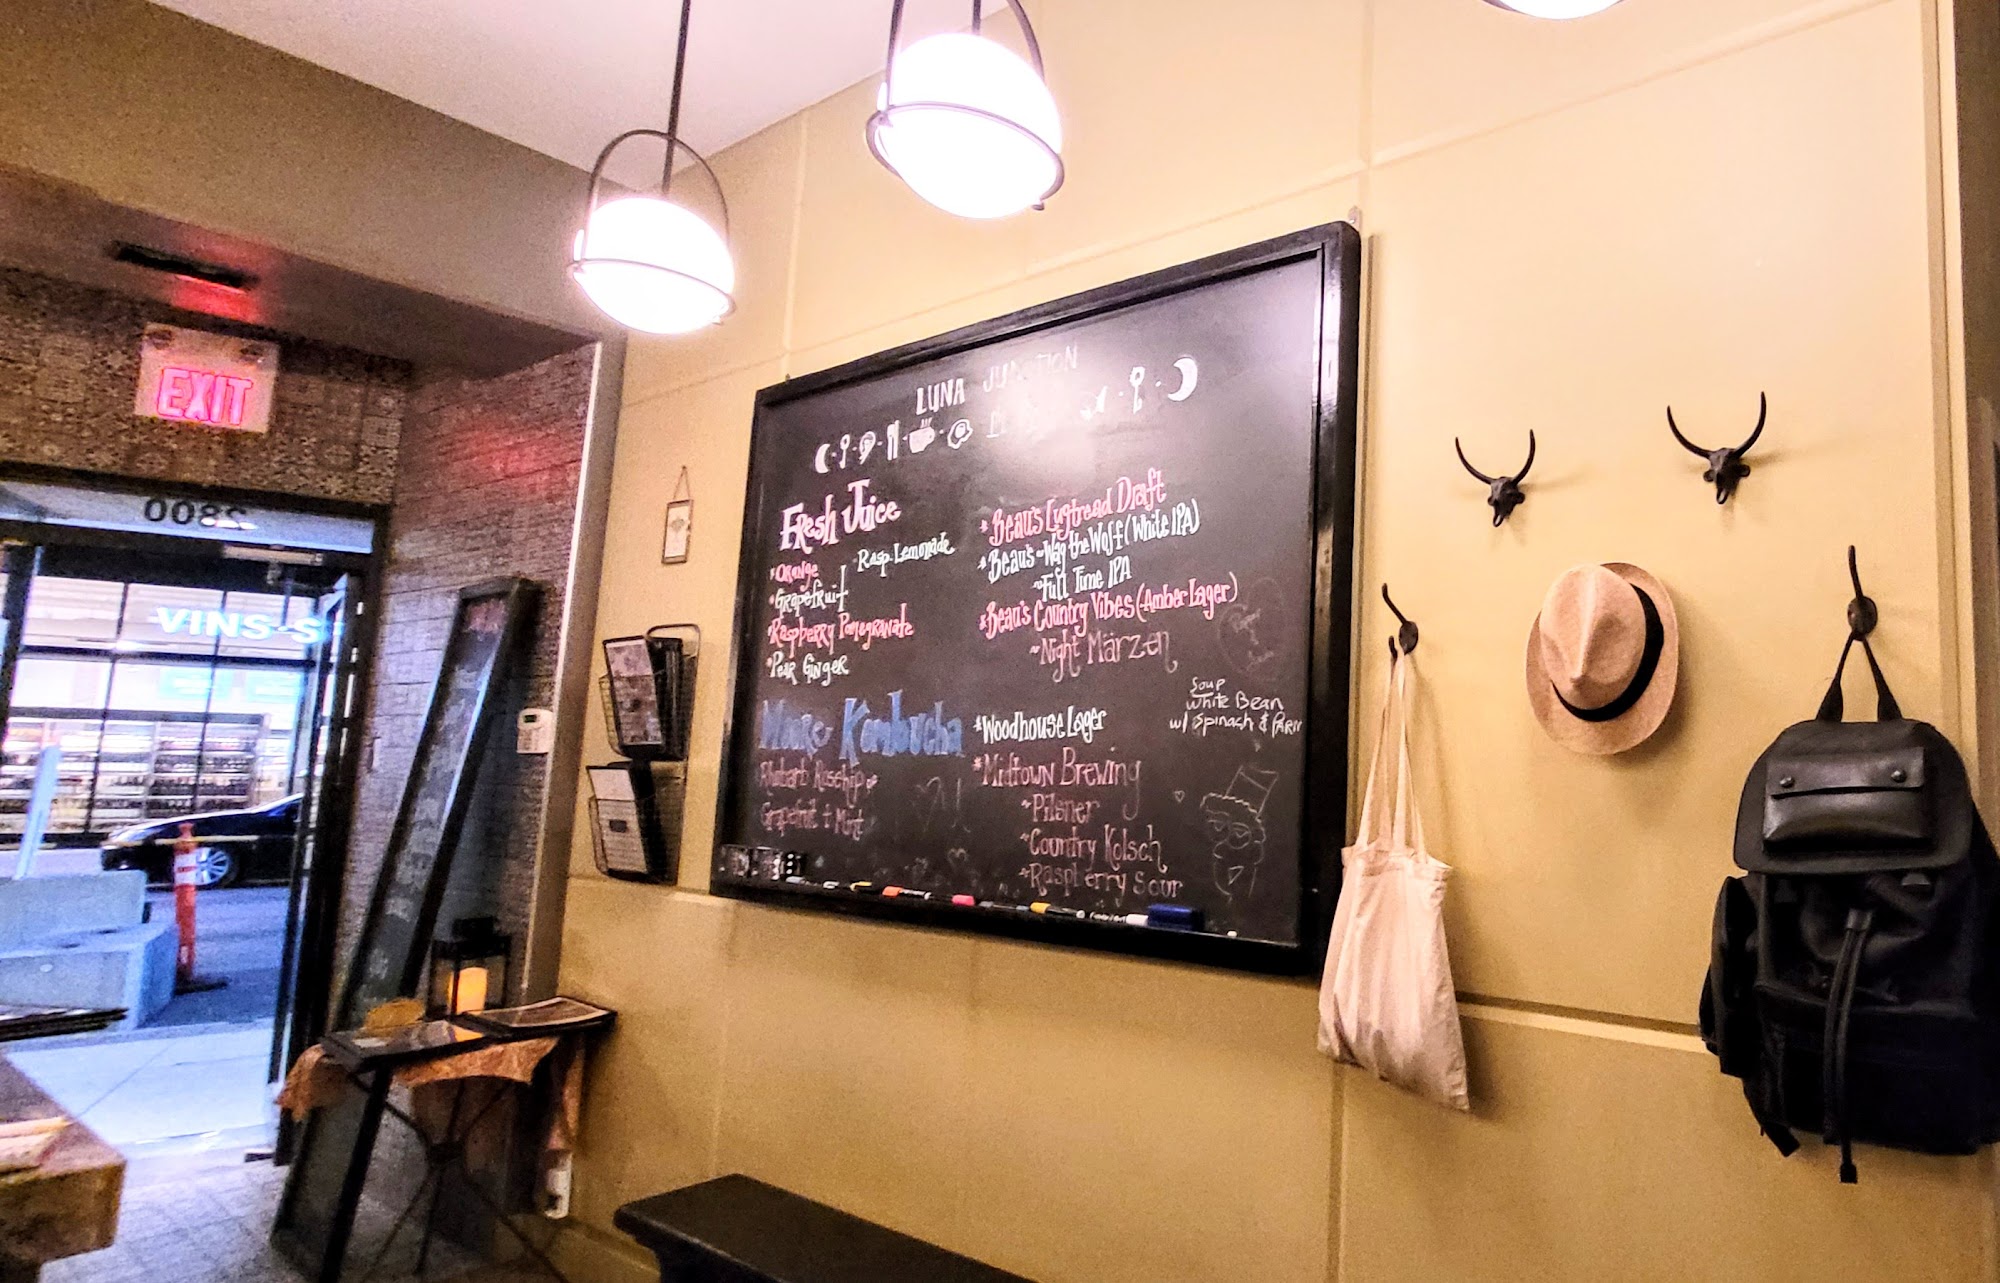 EXIT
2800
VINS-S
LUNA JUNCTION
Fresh Juice
*Orange
Rasp-Lemonade
*Grapefruit
*Raspberry Pomegranate
*Pear Ginger
Kombucha
Rhubarb Rosehip or
Grapefruit + Mint
*Beau's Lugtread Draft
*Beau's ~Wag the Wolf (White IPA)
~Full Time IPA
*Beau's Country Vibes (-Amber Lager)
~Night Märzen
*Woodhouse Lager
*Midtown Brewing
~Pilsner
~Country Kolsch
~Raspberry Sour
Soup
White Bean
w/ Spinach & Parm